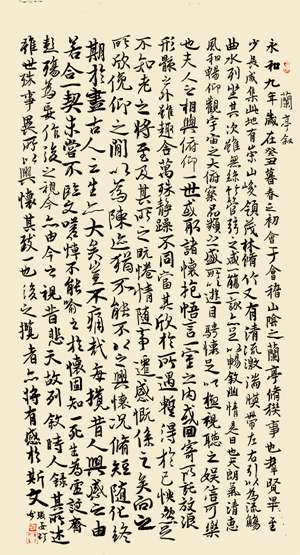 蘭亭叙
永和九年歲在癸丑暮春之初會于會稽山陰之蘭亭脩禊事也羣賢畢至
少長咸集此地有崇山峻領茂林脩竹又有清流激湍映帶左右引以為流觴
曲水列坐其次雖無絲竹管弦之盛一觴一詠亦足以暢敘幽情是日也天朗氣清惠
風和暢仰觀宇宙之大俯察品類之盛所以遊目騁懷足以極視聽之娛信可樂
也夫人之相與俯仰一世或取諸懷抱悟言一室之內或因寄所託放浪
形骸之外雖趣舍萬殊靜躁不同當其欣於所遇暫得於己快然自足
不知老之將至及其所之既惓情隨事遷感慨係之矣向之
所欣俛仰之間以為陳迹猶不能不以之興懷況脩短隨化終
期於盡古人云死生亦大矣豈不痛哉每攬昔人興感之由
若合一契未嘗不臨文嗟悼不能喻之於懷固知一死生為虛誕齊
彭殤為妄作後之視今亦由今之視昔悲夫故列敘時人錄其所述
雖世殊事異所以興懷其致一也後之攬者亦將有感於斯文